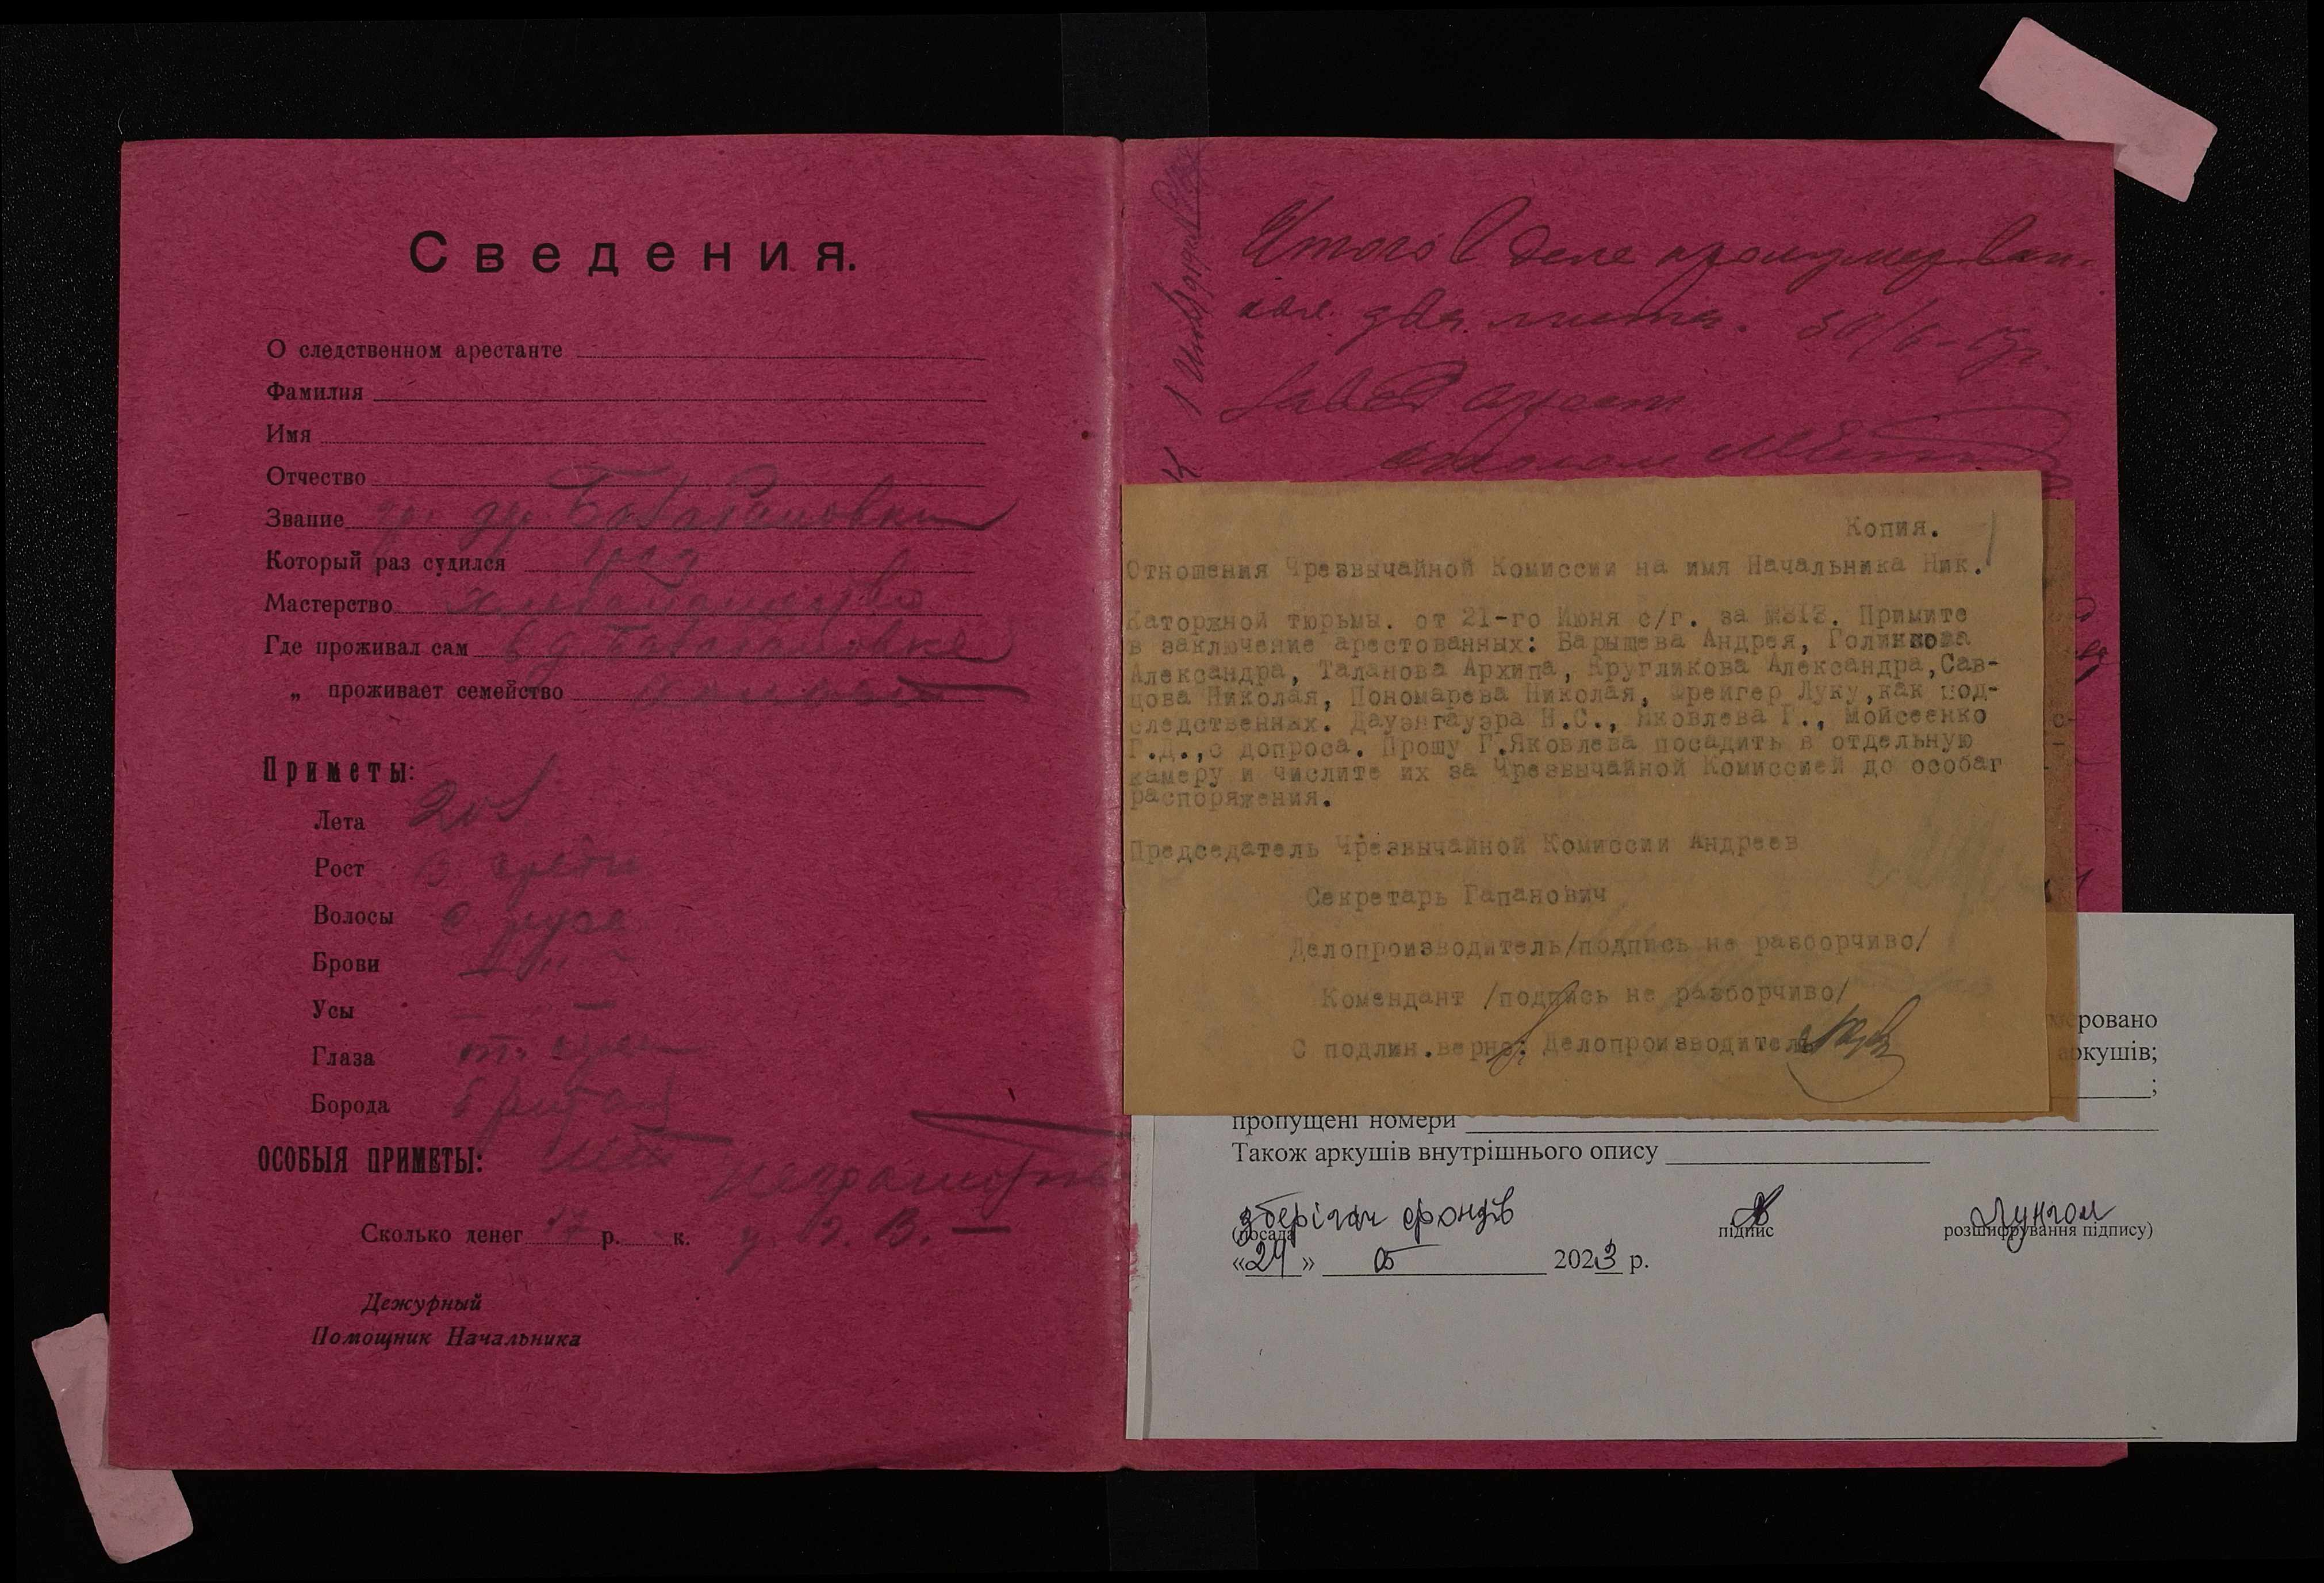 Сведения.
О следственном арестанте
Фамилия
Имя
Отчество
Звание гр. др. Бабадановки
Который раз судился 1 раз
Мастерство хлебопашество
Где проживал сам в д. Бабадановке
„ проживает семейство
Приметы:
Лета 20 л
Рост в. средн
Волосы с. русе
Брови
Усы — —
Глаза
Борода бритая
ОСОБЫЯ ПРИМЕТЫ: нет
неграмотн
Сколько денег 17 р. к. у. О. В. —
Дежурный
Помощник Начальника
Итого в деле пронумерован-
ных два листа. 30/6-19г.
Завед арест
столом
Копия.
Отношения Чрезвычайной Комиссии на имя Начальника Ник.
Каторжной тюрьмы. от 21-го Июня с/г. за Примите
в заключение арестованных: Барышева Андрея, Голинкова
Александра, Таланова Архипа, Кругликова Александра,Сав-
цова Николая, Пономарева Николая, Фрейгер Луку,как под-
следственных. Дауэнгауэра Н.С., Яковлева Г., Мойсеенко
Г.Д.,с допроса. Прошу Г.Яковлева посадить в отдельную
камеру и числите их за Чрезвычайной Комиссией до особаг
распоряжения.
Председатель Чрезвычайной Комиссии Андреев
Секретарь Гапанович
Делопроизводитель/подпись не разборчиво/
Комендант /подпись не разборчиво/
С подлин.верно: Делопроизводитель
еровано
аркушів;
;
пропущені номери
Також аркушів внутрішнього опису
зберігач фондів
(посада підпис розшифрування підпису)
«24» 05 2023 р.